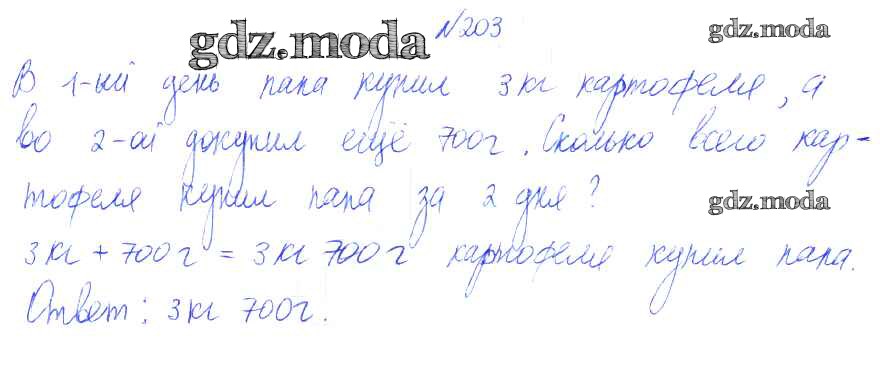 gdz.moda №203 gdz.moda
В 1-ый день папа купил 3кг картофеля, а
во 2-ой докупил ещё 700г. Сколько всего кар-
тофеля купил папа за 2 дня?
gdz.moda
3кг + 700г = 3кг 700г картофеля купил папа.
Ответ: 3кг 700г.